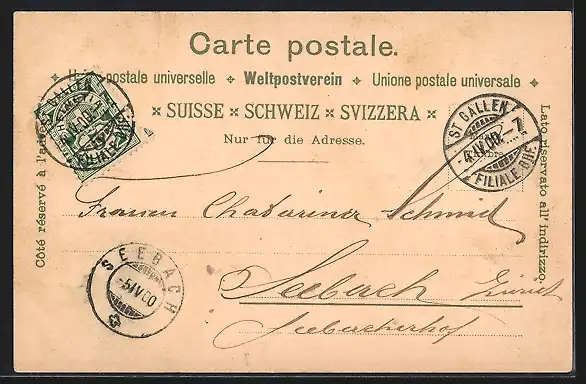 Carte postale.
Union postale universelle ✦ Weltpostverein ✦ Unione postale universale ✦
× SUISSE × SCHWEIZ × SVIZZERA ×
Nur für die Adresse.
Côté réservé à l'adresse.
Lato riservato all' indirizzo.
ST. GALLEN
FILIALE BHF.
ST. GALLEN
-4.IV.00.-7
FILIALE BHF.
Schmid
Seebach Zürich
Seebacherhof
SEEBACH
-5.IV.00